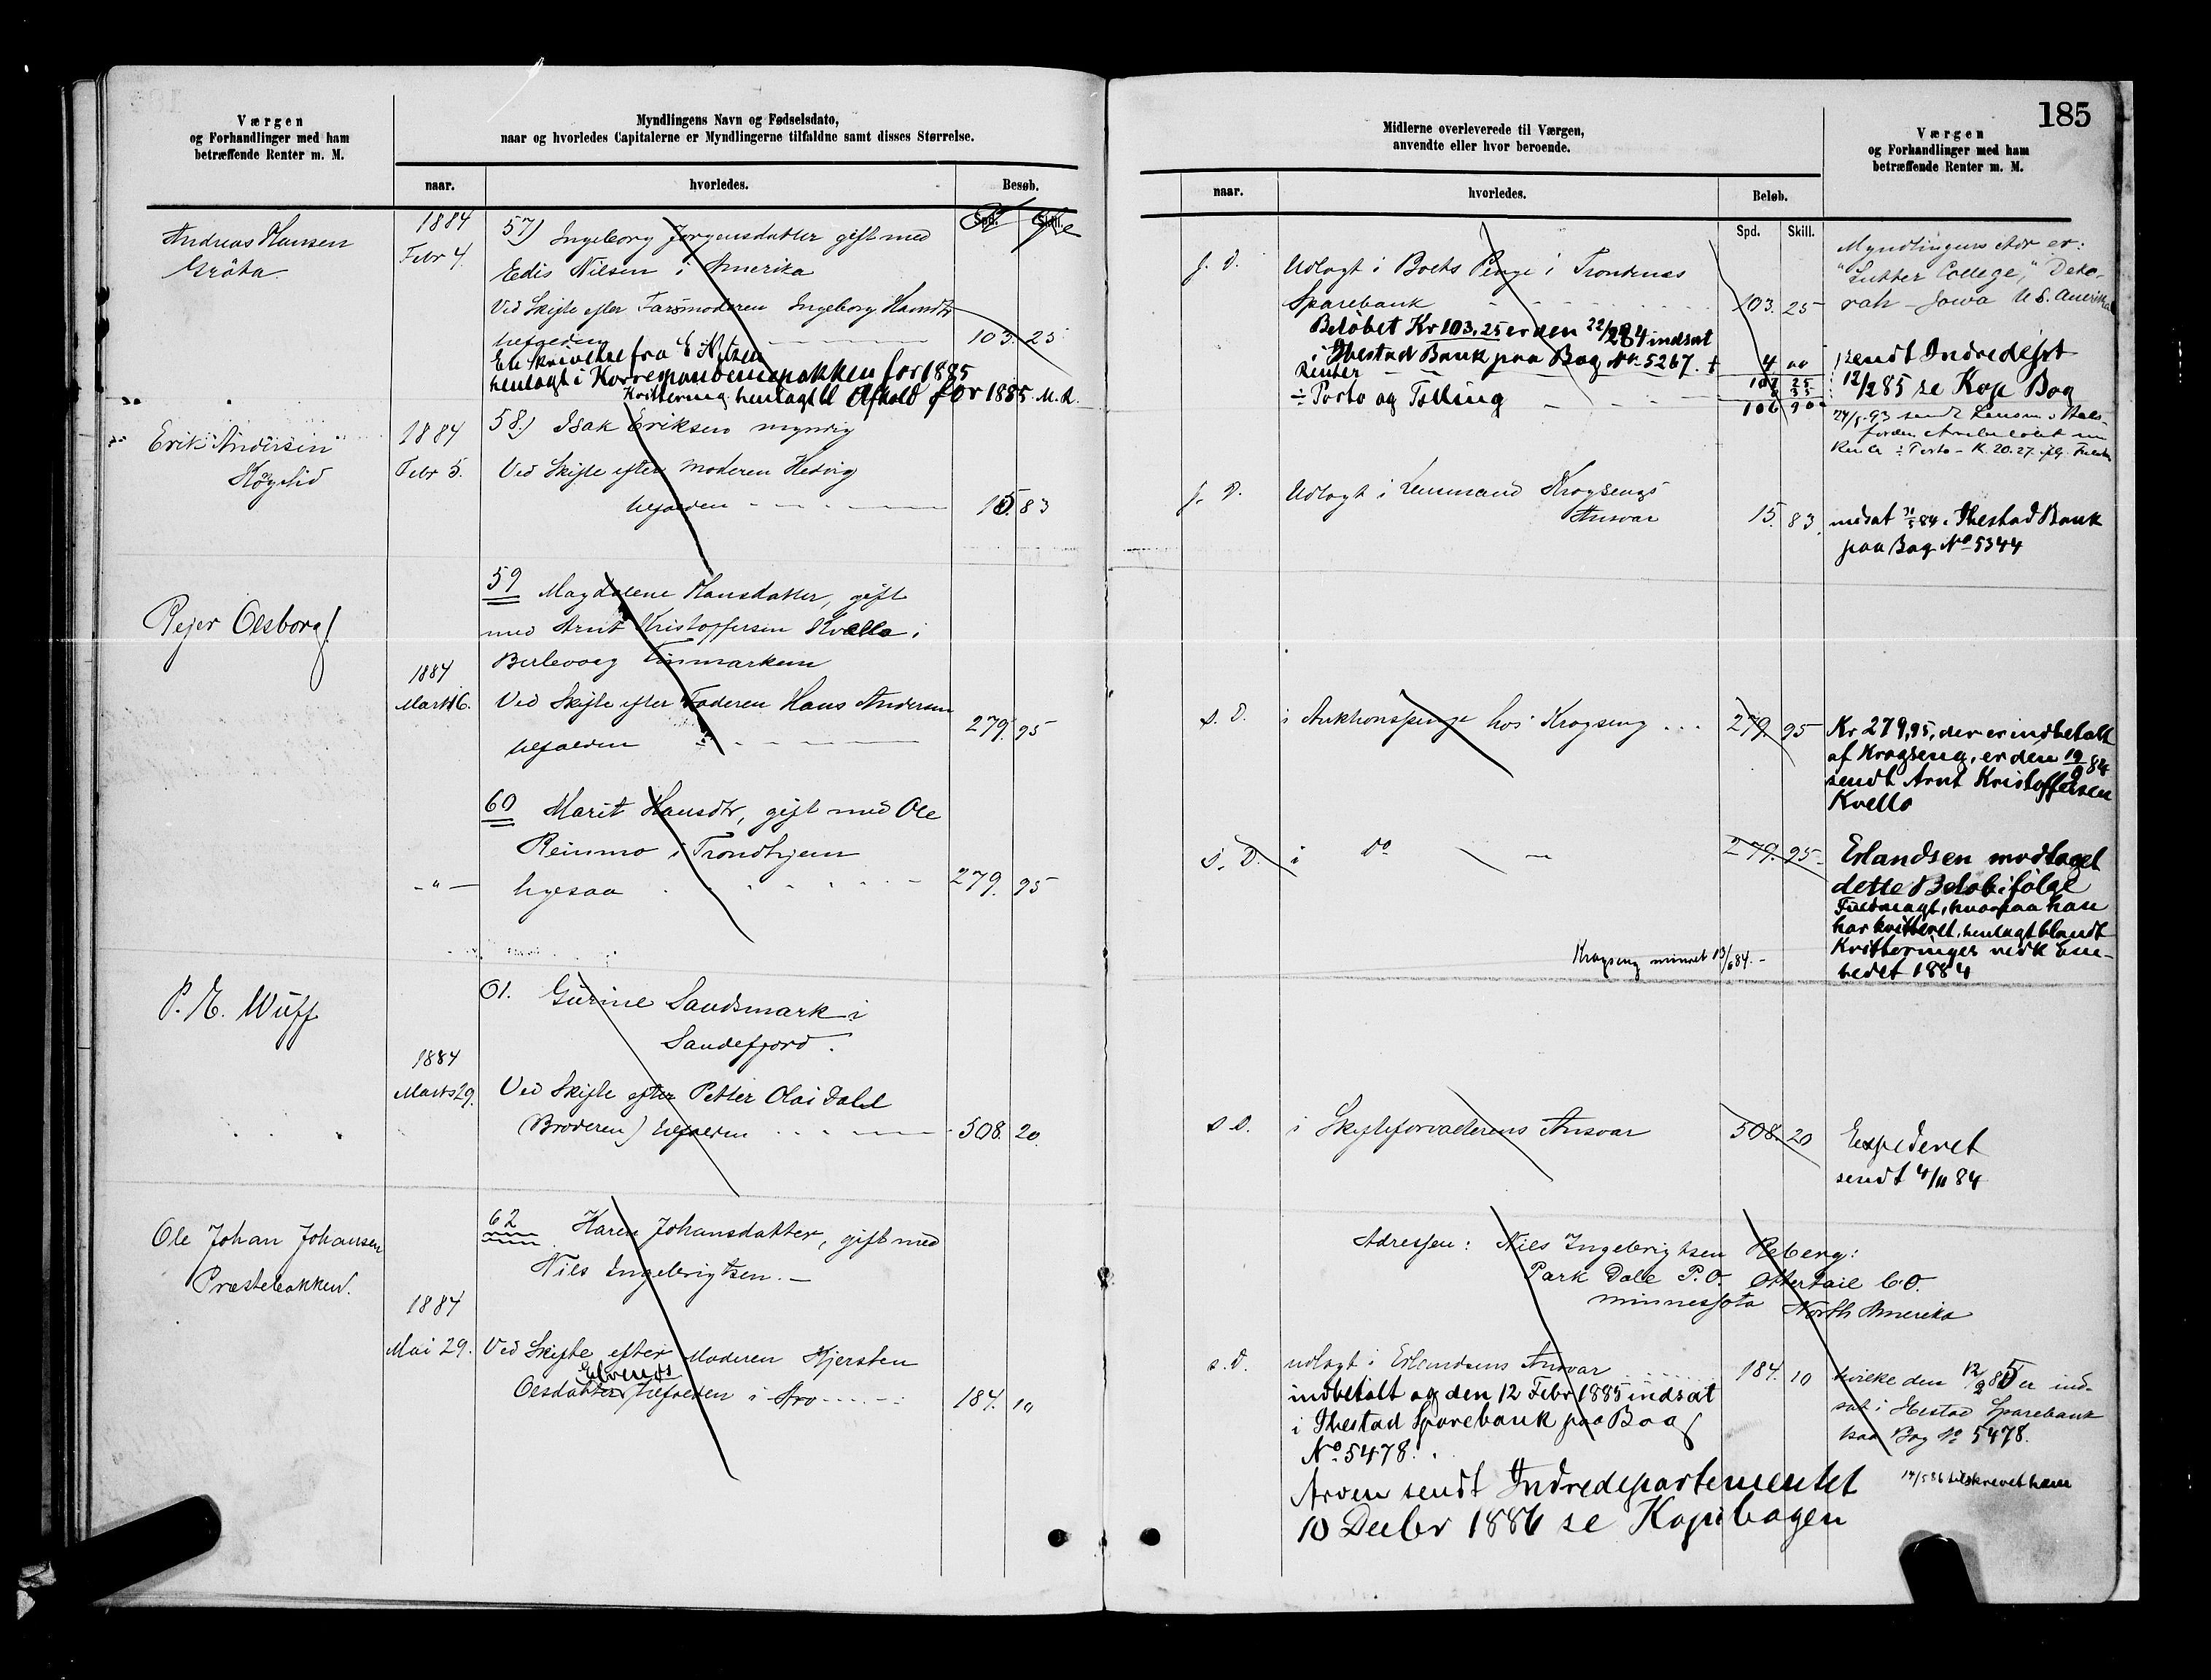 185
Værgen
og Forhandlinger med ham
betræffende Renter m. M.
Myndlingens Navn og Fødselsdato,
naar og hvorledes Capitalerne er Myndlingerne tilfaldne samt disses Størrelse.
naar.
hvorledes.
Besøb.
Spd.
Skill.
Andreas Hansen
Gråta
1884
Febr 4.
57) Ingeborg Jørgensdatter gift med
Edis Nilsen i Amerika
Ved Skifte efter Farsmoderen Ingeborg Hansdtr
tilfalden
103. 25
En skrivelse fra E Nilsen
henlagt i Korrespondencepakken for 1885
Kvittering henlagt til Afhold for 1885. M. R.
Erik Andersen
1884
Febr 5.
58.) Isak Eriksen myndig
Ved Skifte efter Moderen Hedvig
tilfalden
15. 83
Pejer Olsborg
1884
Marts 16.
59 Magdalene Hansdatter, gift
med Arnt Kristoffersen Kvello i
Berlevaag Finmarken
Ved Skifte efter Faderen Hans Andersen
tilfalden
279. 95
60 Marit Hansdtr, gift med Ole
Reinmo i Trondhjem
ligesaa
279. 95
61. Gurine Sandsmark i
Sandefjord.
1884
Marts 29.
Ved Skifte efter Petter Olai Dahl
(Broderen) tilfalden
508. 20.
Ole Johan Johansen
Præstebakken.
62 Karen Johansdatter, gift med
Nils Ingebrigtsen.
1884
Mai 29.
Ved Skifte efter Moderen Kjersten
Olsdatter tilfalden i
184. 10
Midlerne overleverede til Værgen,
anvendte eller hvor beroende.
Værgen
og Forhandlinger med ham
betræffende Renter m. M.
naar.
hvorledes.
Beløb.
Spd.
Skill.
s. D.
Udlagt i Boets Penge i Trondenæs
Sparebank
103. 25
Beløbet Kr 103,25 er den 22/2 84 indsat
i Ibestad Bank paa Bog No 5267. +
Renter
4 00
107 25
35
÷ Porto og Tolling
106 90
Myndlingens Adr er:
"Luther College," Deko-
rah - Iowa U. S. Amerika
sendt Indredept
12/2 85 se Kop Bog
s. D.
Udlagt i Lensmand Krogsengs
Ansvar
15. 83
indsat 31/5 84 i Ibestad Bank
paa Bog No 5344
s. D.
i Auktionspenge hos Krogseng
279. 95
Kr 279,95, der er indbetalt
af Krogseng, er den 19/9 84
sendt Arnt Kristoffersen
Kvello
s. D.
i do
279. 95
Erlandsen modtaget
dette Beløb ifølge
Fuldmagt, hvorpaa han
har kvitteret, henlagt blandt
Kvitteringer vedk Em-
bedet 1884
Krogseng mindet 13/6 84.
s D.
i Skifteforvalterens Ansvar
508. 20
Expederet
sendt 4/11 84
Adressen: Nils Ingebrigtsen Reberg:
Park Dale P.O. Ottertail C.O.
Minnessota North Amerika
s. D.
udlagt i Erlandsens Ansvar
184. 10
indbetalt og den 12 Febr 1885 indsat
i Ibestad Sparebank paa Bog
No 5478.
hvilke den 12/2 85 er ind-
sat i Ibestad Sparebank
paa Bog No 5478.
Arven sendt Indredepartementet
10 Decbr 1886 se Kopibogen
tilskrevet ham